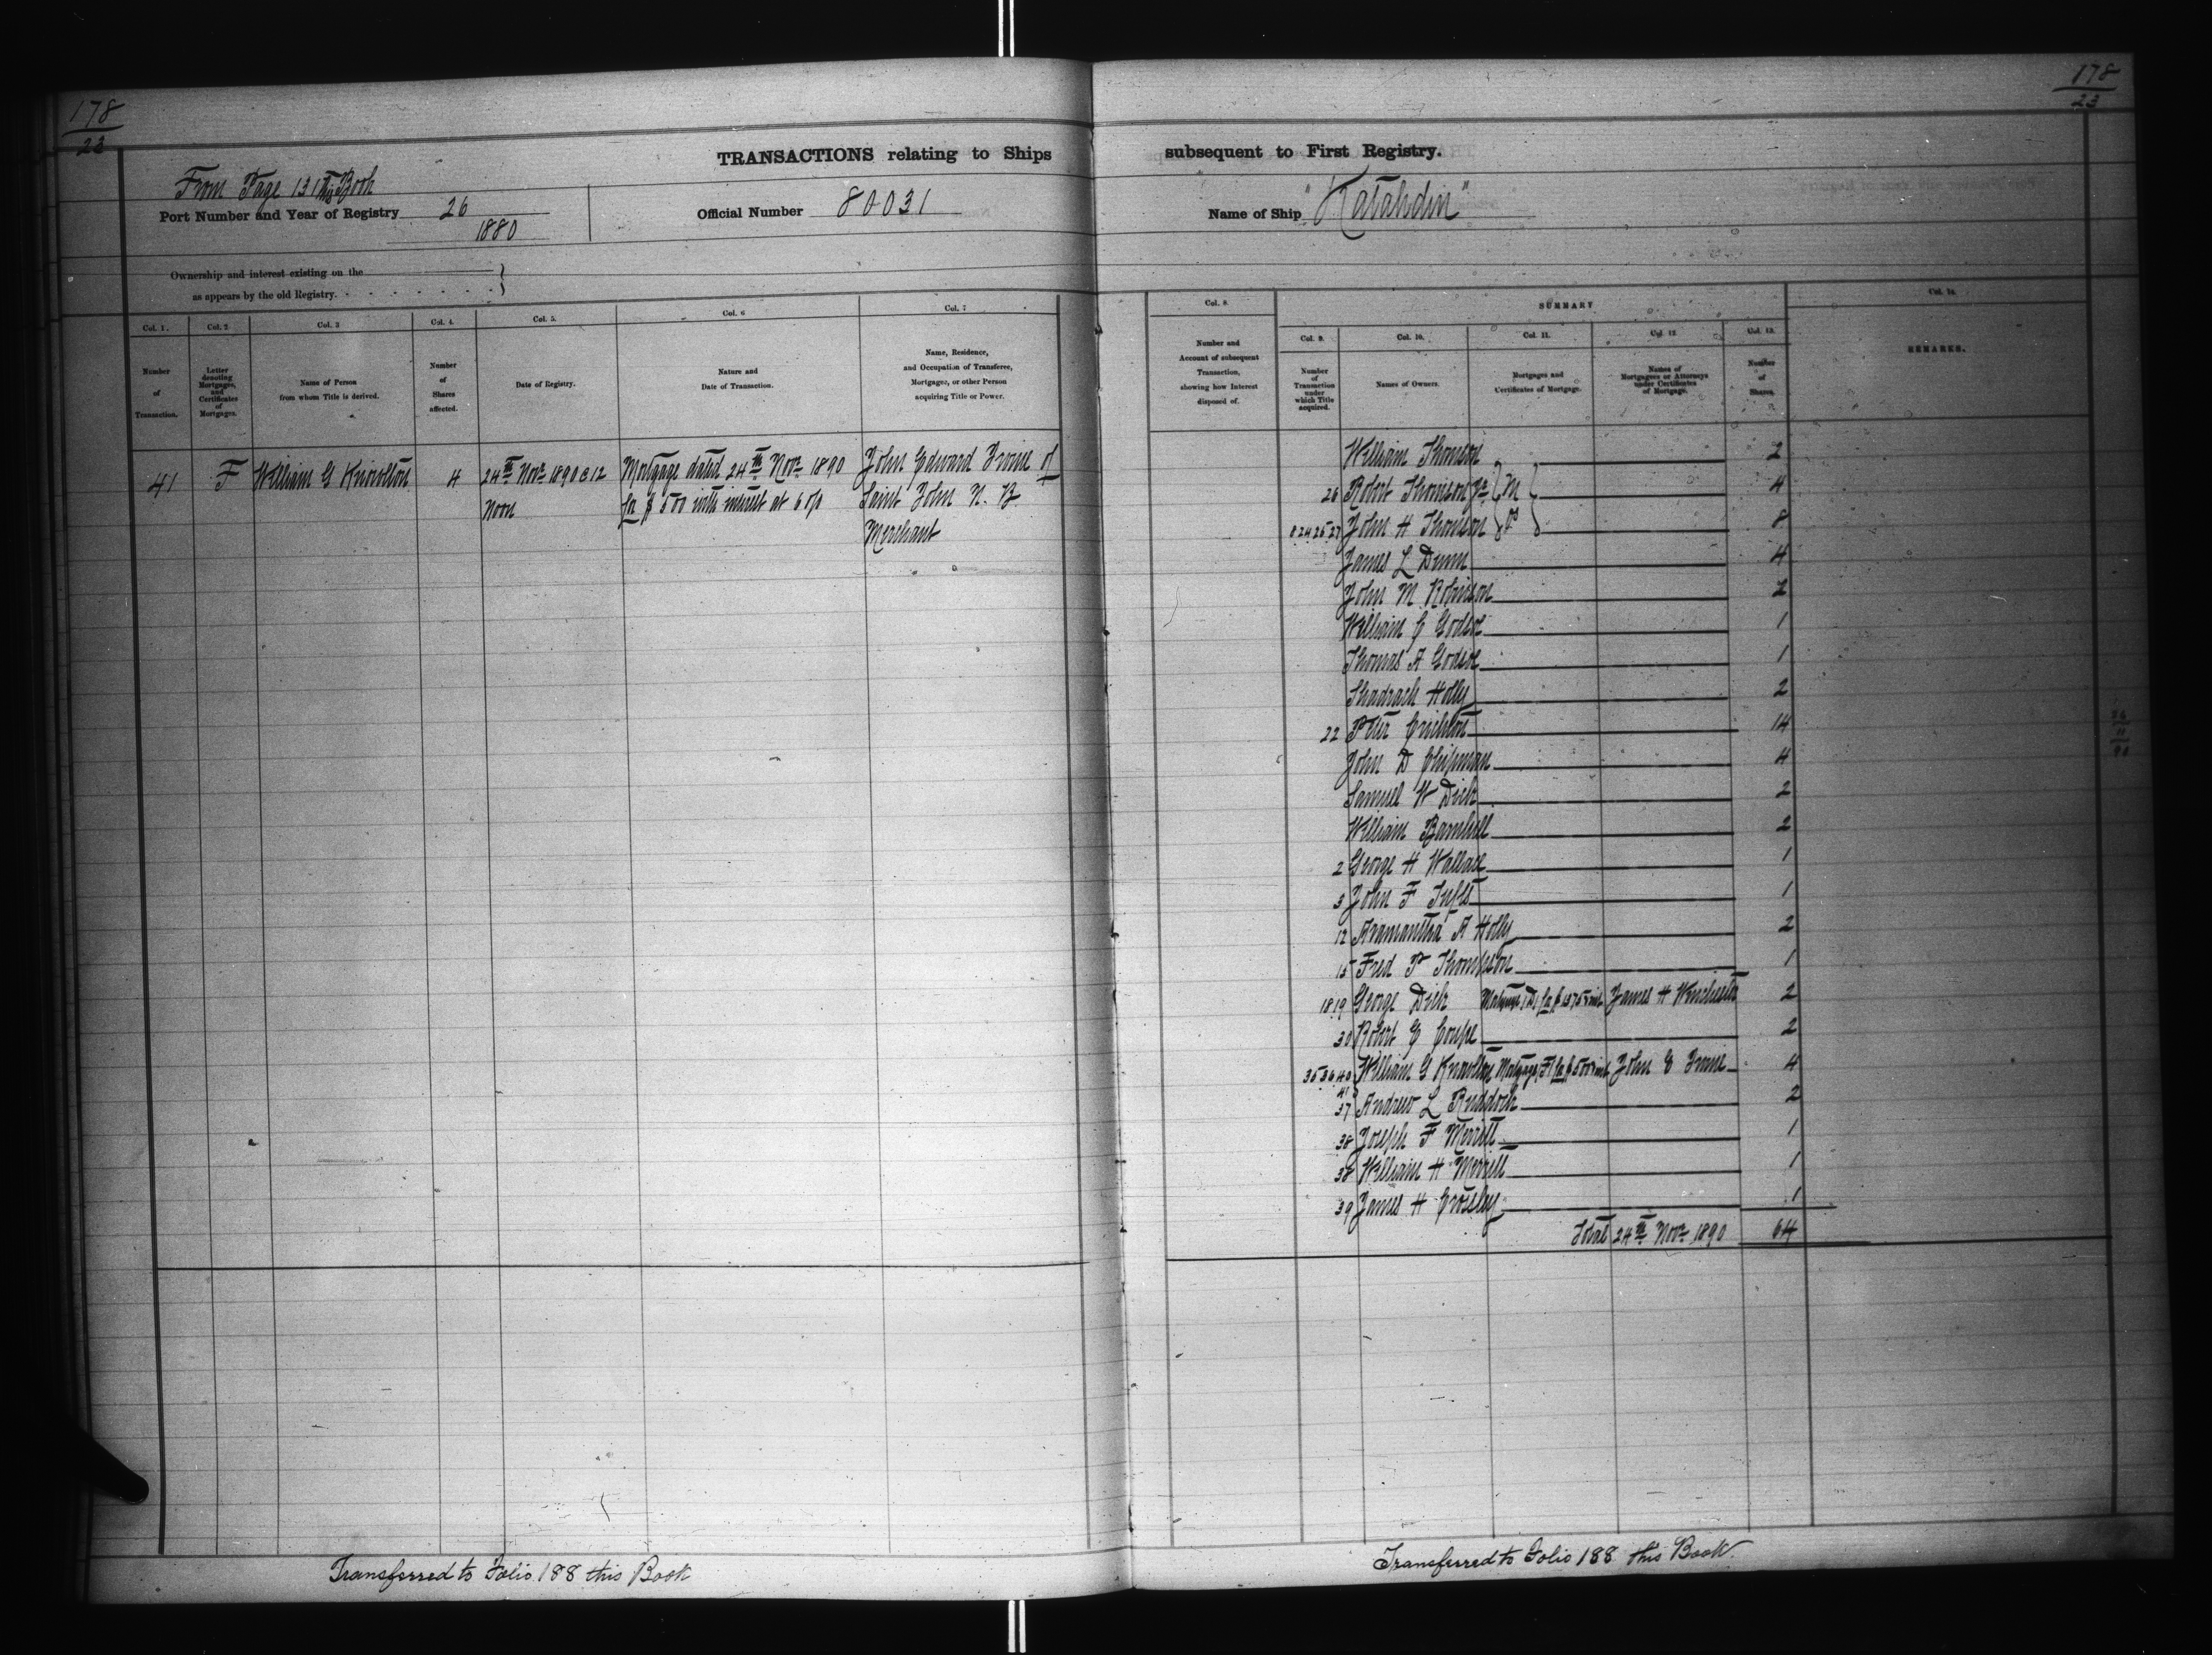 178
23
TRANSACTIONS relating to Ships
From Page 131 this Book
Port Number and Year of Registry 26
1880
Official Number 80031
Ownership and interest existing on the
as appears by the old Registry.
Col. 1. Col. 2 Col. 3 Col. 4. Col. 5. Col. 6 Col. 7
Number of Transaction.
Letter denoting Mortgages, and Certificates of Mortgages.
Name of Person from whom Title is derived.
Number of Shares affected.
Date of Registry.
Nature and Date of Transaction.
Name, Residence, and Occupation of Transferee, Mortgagee, or other Person acquiring Title or Power.
41 F William G Knowlton 4 24th Novr 1890 @ 12 Mortgage dated 24th Novr 1890 John Edward Irvine of
Noon for $500 with interest at 6 o/o Saint John N. B.
Merchant
Transferred to Folio 188 this Book
178
23
subsequent to First Registry.
Name of Ship "Katahdin"
Col. 8.
Number and Account of subsequent Transaction, showing how Interest disposed of.
SUMMARY
Col. 9. Col. 10. Col. 11. Col. 12 Col. 13. Col. 14.
Number of Transaction under which Title acquired.
Names of Owners.
Mortgages and Certificates of Mortgage.
Names of Mortgagees or Attorneys under Certificates of Mortgage.
Number of Shares.
REMARKS.
William Thomson 2
26 Robert Thomson Jr 4
8 24 25 27 John H Thomson 8
James L Dunn 4
John M Robinson 2
William C Godsoe 1
Thomas A Godsoe 1
Shadrach Holly 2
22 Peter Crichton 14
John D Chipman 4
Samuel W Dick 2
William Barnhill 2
2 George H Wallace 1
3 John F Tufts 1
12 Aramantha A Holly 2
15 Fred P Thompson 1
18.19 George Dick Mortgage (D) for $1375 & int James H Winchester 2
30 Robert G Coupe 2
35 36 40 William G Knowlton Mortgage F for $500 & int John E Irvine 4
41
37 Andrew L Ruddock 2
38 Joseph F Merritt 1
38 William H Merritt 1
39 James H Crossley 1
Total 24th Novr 1890 64
26
11
90
Transferred to Folio 188 this Book.